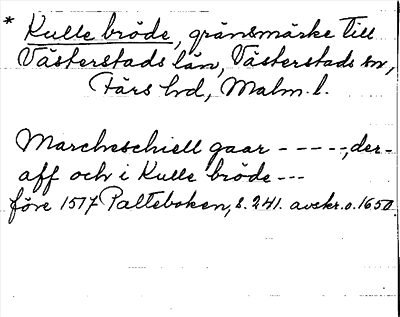 * Kulle bröde, gränsmärke till
Västerstads län, Västerstads sn,
Färs hd, Malm. l.
Marcheschiell gaar - - - - -, der-
aff och i Kulle bröde - - -
före 1517 Palteboken, s. 241. avskr. o. 1650.